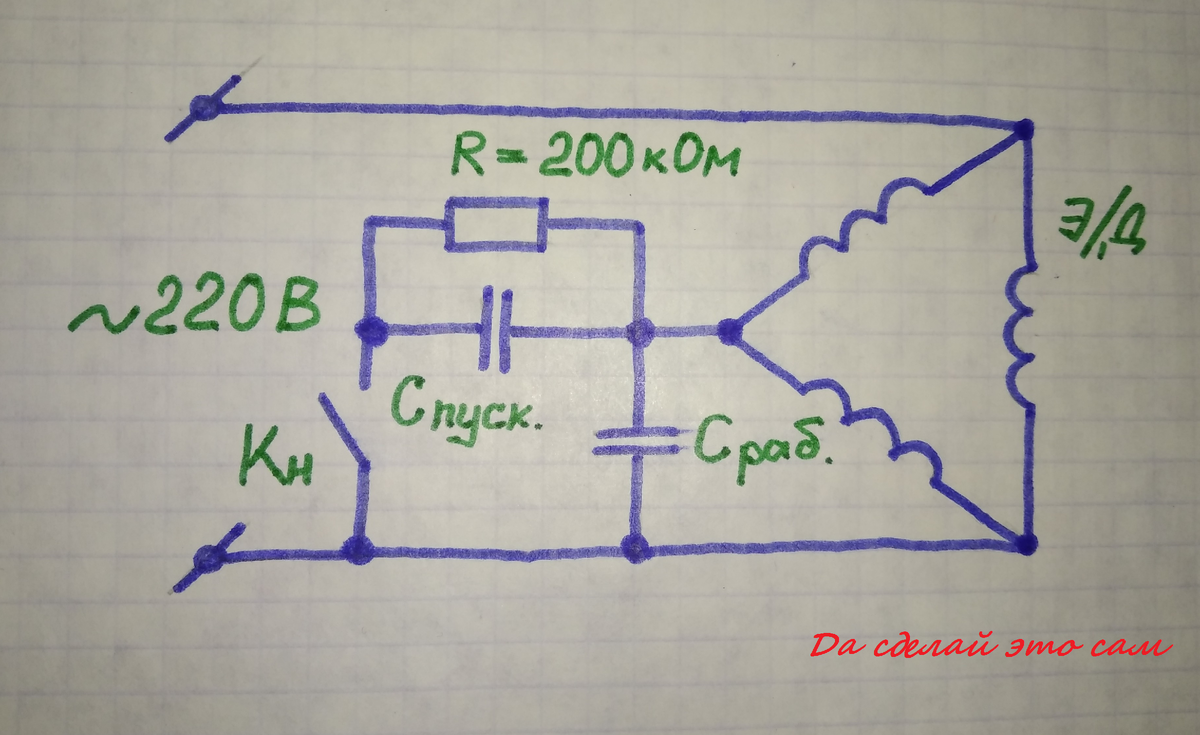 R = 200кОм
~220В
Спуск.
Кн
Сраб.
Э/Д
Да сделай это сам